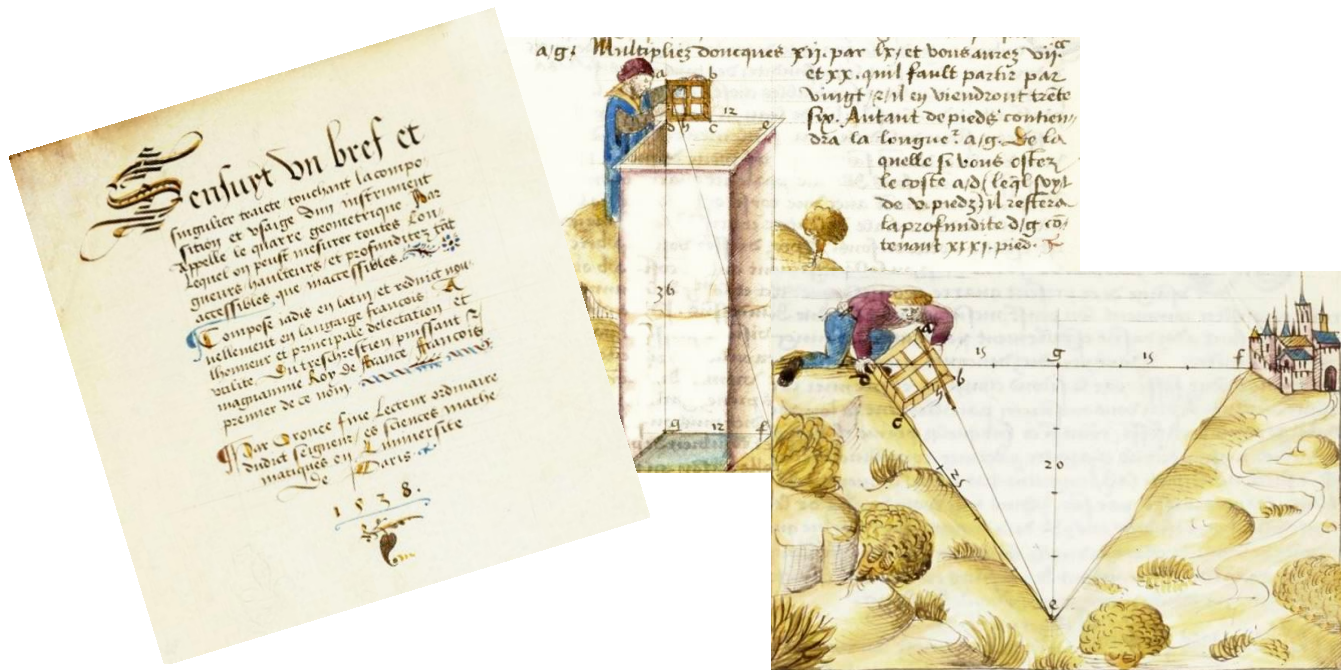 Sensuyt vng bref et
singulier traicte touchant la compo-
sition et vsaige dun instrument
Appelle le quarre geometrique Par
lequel on peust mesurer toutes Lon-
gueurs haulteurs et profunditez tāt
accessibles que inaccessibles.
Compose iadis en latin et reduict nou-
uellement en langaige francois A
lhonneur et principale delectation et
du treschrestien puissant &
magnanime Roy de france francois
premier de ce nom.
Par Oronce fine Lecteur ordinaire
dudict seigneur es sciences mathe-
matiques en Luniuersite
de Paris.
1538.
a/g. Multipliez doncques xij. par lx, et vous aurez vij.c
et xx. quil fault partir par
vingt / il en viendront trēte
six. Autant de piedz contien-
dra la longuer a/g. De la
quelle si vous ostez
le coste a/d (leql soyt
de v. piedz) il restera
la profundite d/g cō-
tenant xxxj. pied.
a b
12
d h c e
36
g 12 f
a
15 g 15 f
b
h
c
20
25
e